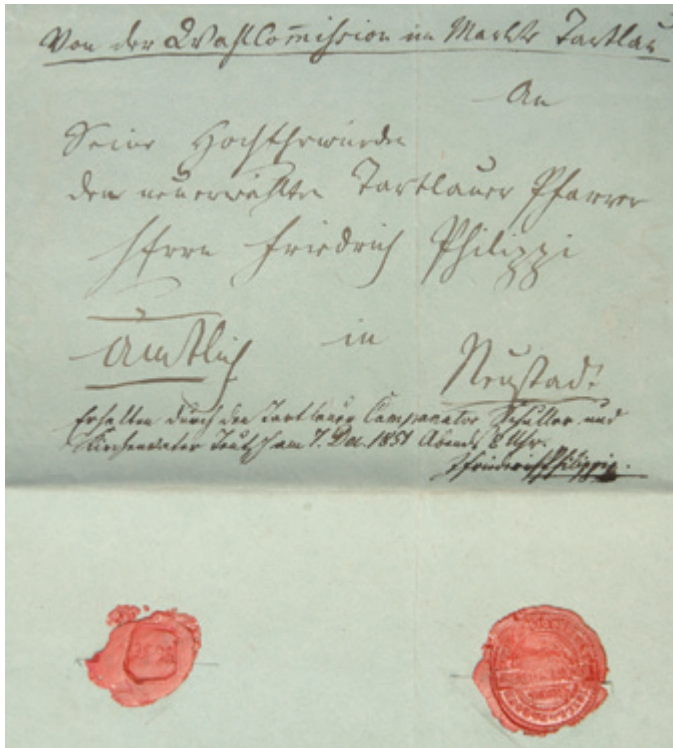 Von der WahlCom̅ission im Markte Tartlau
An
Seine Hochehrwürden
den neuerwählten Tartlauer Pfarrer
Herrn Friedrich Philippi
Amtlich in Neustadt
Erhalten durch den Tartlauer Campanator Schuller und
Kirchenvater Teutsch am 7. Dec. 1851 Abends 8 Uhr.
Friedrich Philippi.